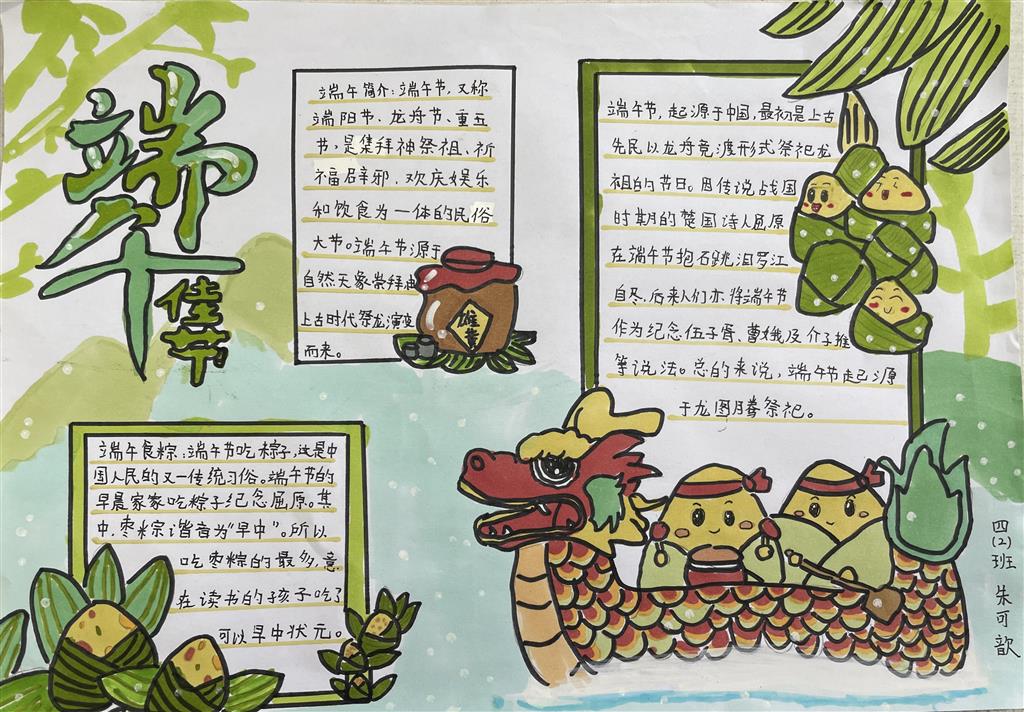 端午
佳节
端午简介：端午节，又称
端阳节、龙舟节、重五
节，是集拜神祭祖、祈
福辟邪、欢庆娱乐
和饮食为一体的民俗
大节。端午节源于
自然天象崇拜由
上古时代祭龙演变
而来。
雄黄
端午节，起源于中国，最初是上古
先民以龙舟竞渡形式祭祀龙
祖的节日。因传说战国
时期的楚国诗人屈原
在端午节抱石跳汨罗江
自尽，后来人们亦将端午节
作为纪念伍子胥、曹娥及介子推
等说法。总的来说，端午节起源
于龙图腾祭祀。
端午食粽：端午节吃粽子，这是中
国人民的又一传统习俗。端午节的
早晨家家吃粽子纪念屈原。其
中，枣粽谐音为“早中”。所以
吃枣粽的最多，意
在读书的孩子吃了
可以早中状元。
四(2)班 朱可歆